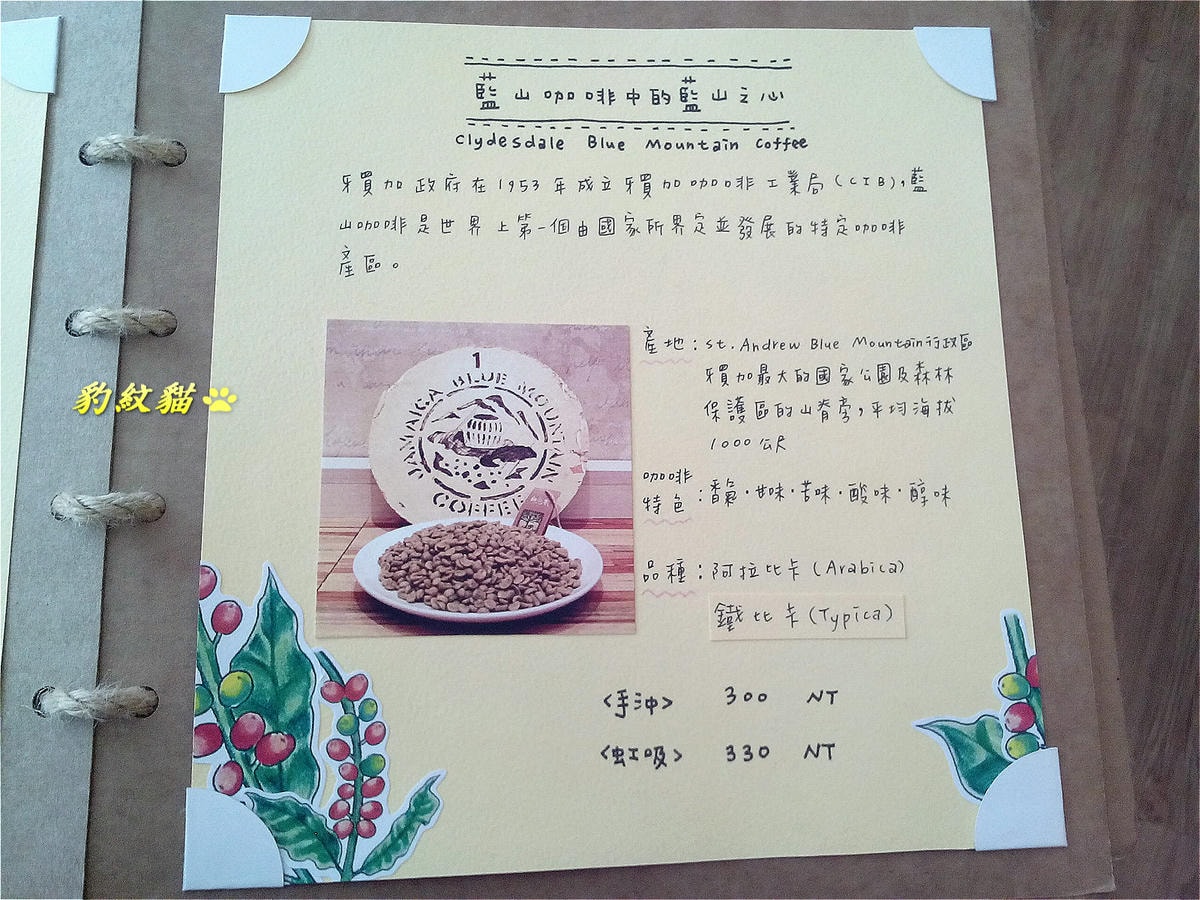 藍山咖啡中的藍山之心
Clydesdale Blue Mountain Coffee
牙買加政府在1953年成立牙買加咖啡工業局(CIB),藍
山咖啡是世界上第一個由國家所界定並發展的特定咖啡
產區。
1
JAMAICA BLUE MOUNTAIN
COFFEE
產地:St. Andrew Blue Mountain行政區
牙買加最大的國家公園及森林
保護區的山脊旁,平均海拔
1000公尺
咖啡
特色:香氣·甘味·苦味·酸味·醇味
品種:阿拉比卡(Arabica)
鐵比卡(Typica)
<手沖> 300 NT
<虹吸> 330 NT
豹紋貓